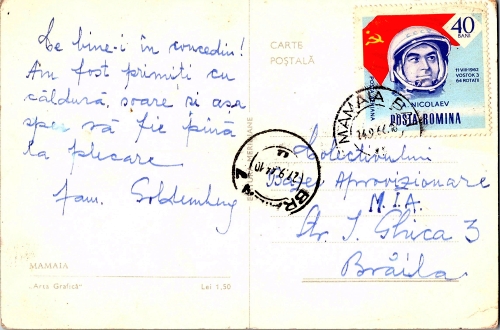 Ce bine-i în concediu!
Am fost primiți cu
căldură, soare si asa
sper să fie pînă
la plecare
fam. Goldemberg
MAMAIA
„Arta Grafică”
Lei 1.50
CARTE
POȘTALĂ
40
BANI
11 VIII 1962
VOSTOK 3
64 ROTAȚII
NICOLAEV
POSTA ROMINA
MAMAIA
24.9.64.
27.9.64.10
Colectivului
Bazei Aprovizionare
M.I.A.
Str. I. Ghica 3
Brăila